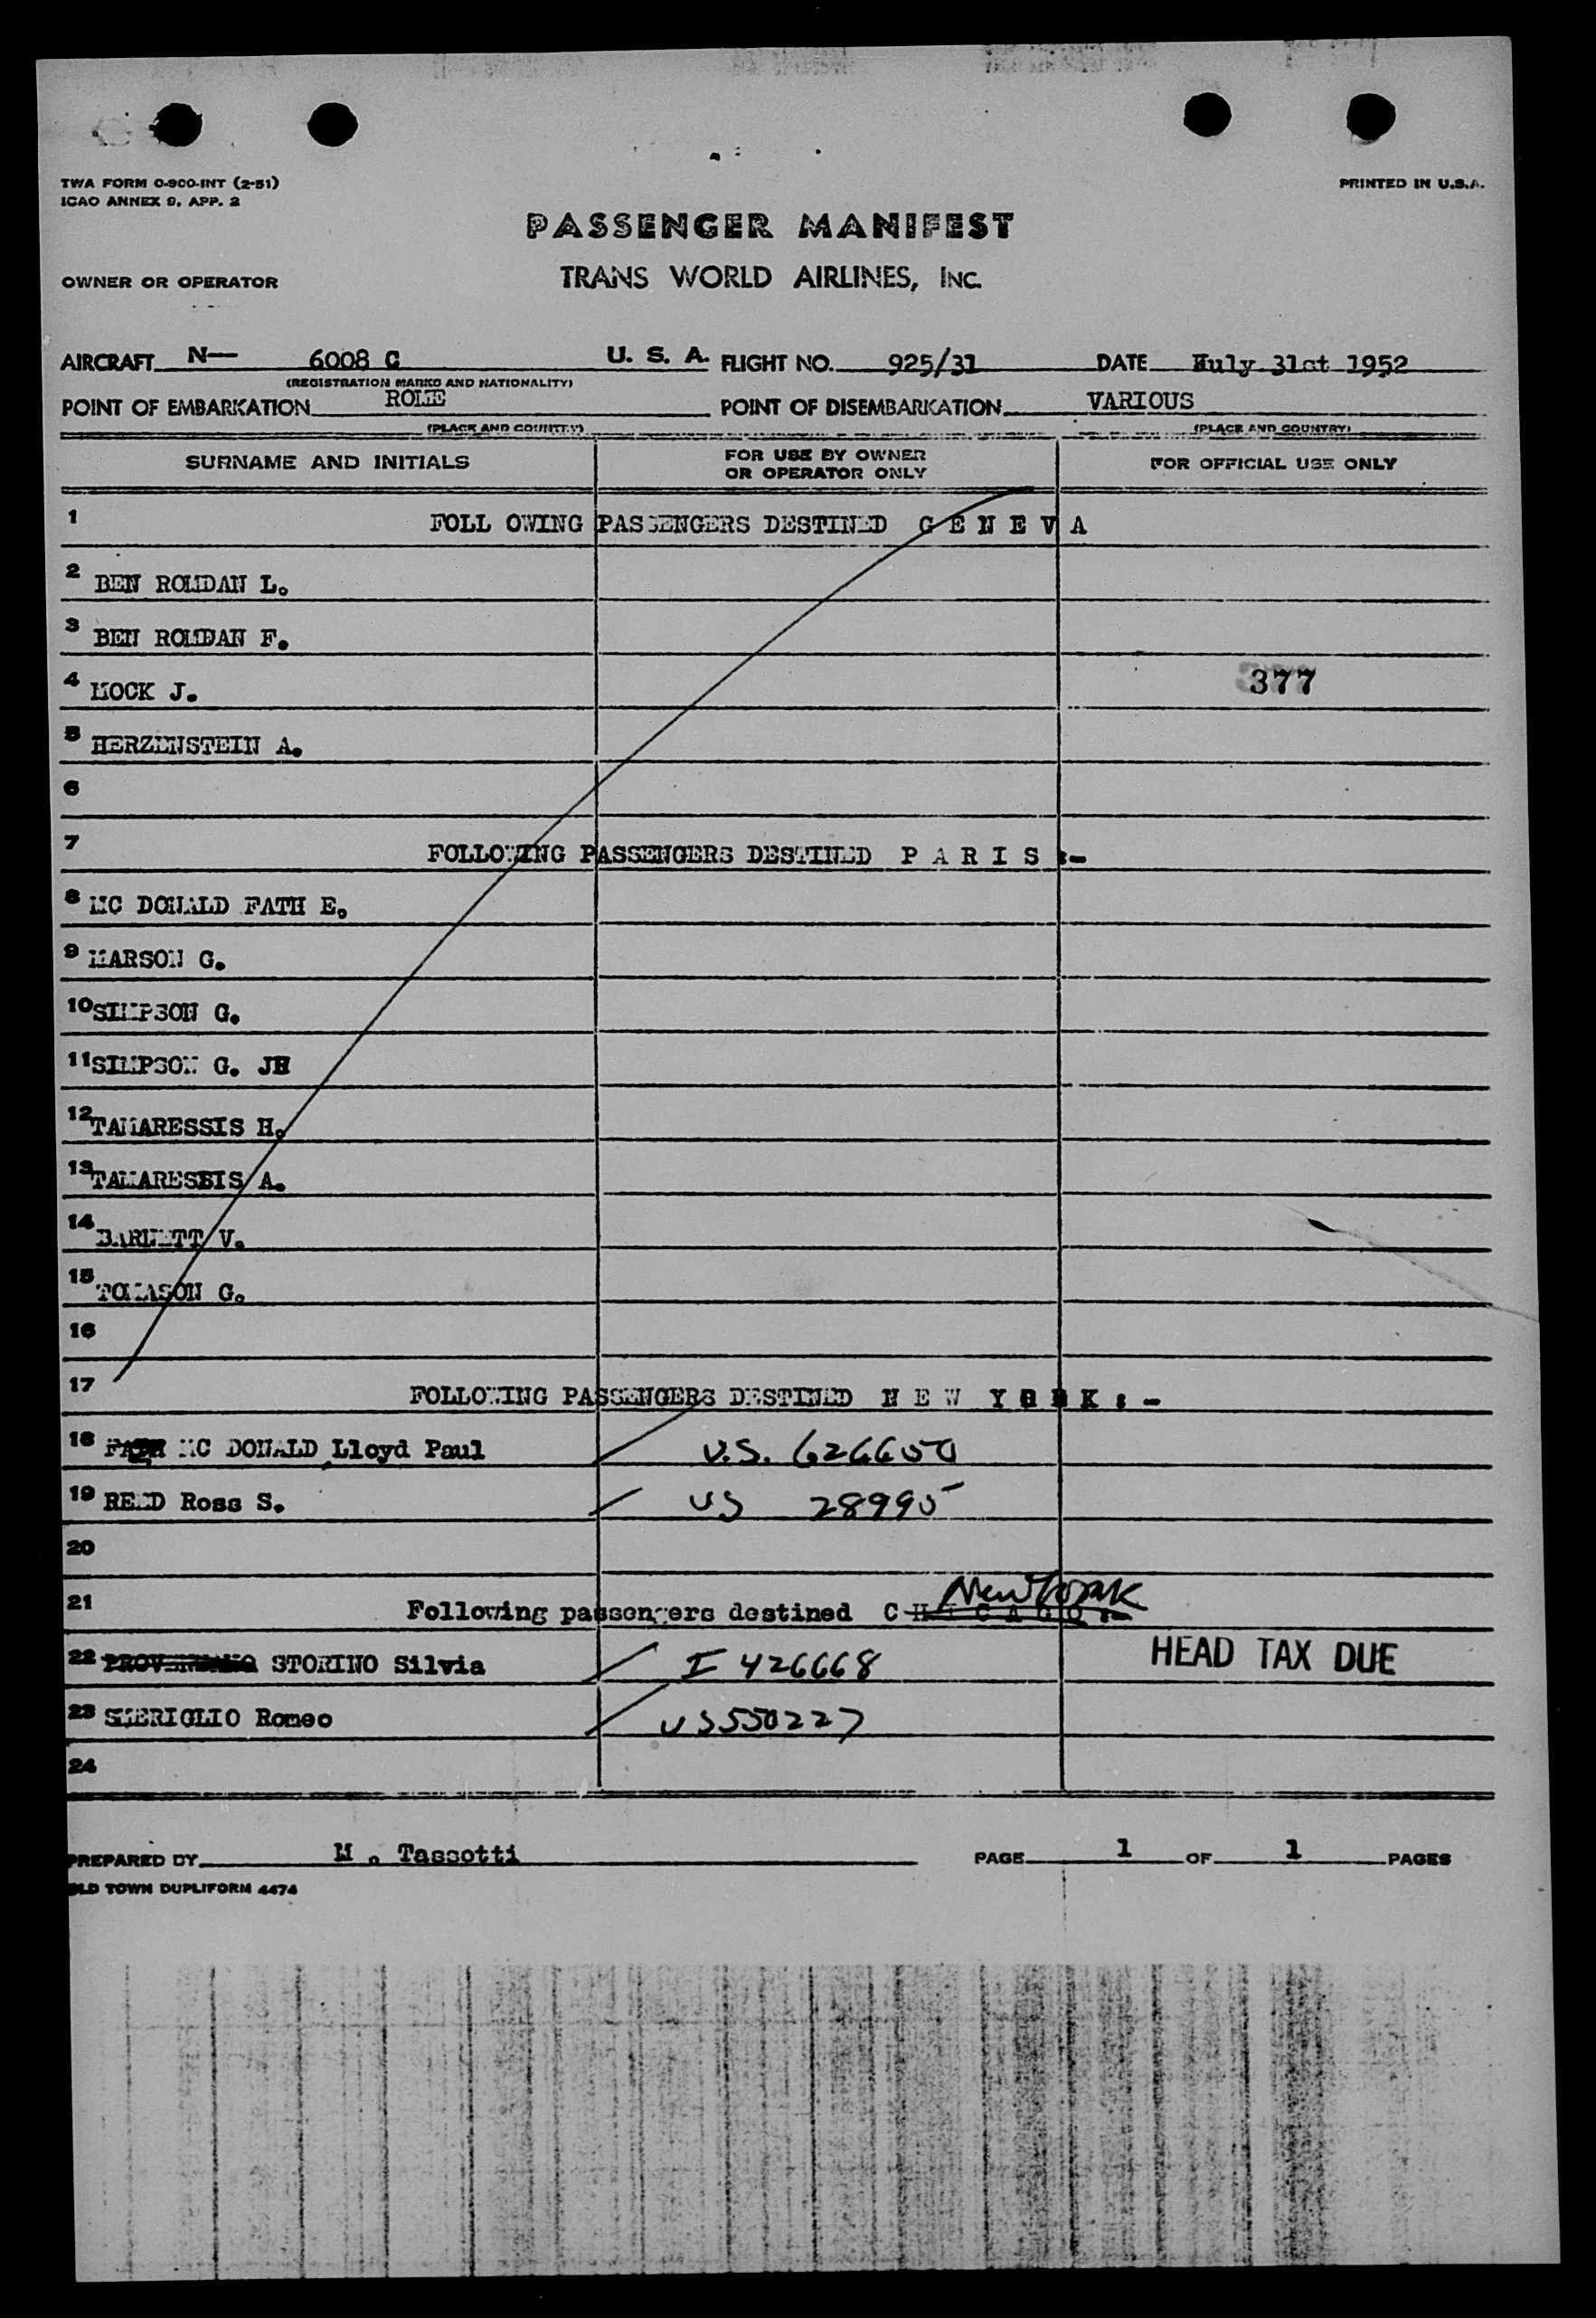 TWA FORM O-900-INT (2-51)
ICAO ANNEX 9, APP. 2
PRINTED IN U.S.A.
PASSENGER MANIFEST
OWNER OR OPERATOR TRANS WORLD AIRLINES, INC.
AIRCRAFT N— 6008 C U. S. A. FLIGHT NO. 925/31 DATE July 31st 1952
(REGISTRATION MARKS AND NATIONALITY)
POINT OF EMBARKATION ROME POINT OF DISEMBARKATION VARIOUS
(PLACE AND COUNTRY) (PLACE AND COUNTRY)
SURNAME AND INITIALS FOR USE BY OWNER OR OPERATOR ONLY FOR OFFICIAL USE ONLY
1 FOLL OWING PASSENGERS DESTINED G E N E V A
2 BEN ROMDAN L.
3 BEN ROMDAN F.
4 MOCK J. 377
5 HERZENSTEIN A.
6
7 FOLLOWING PASSENGERS DESTINED P A R I S :-
8 MC DONALD FATH E.
9 MARSON G.
10 SIMPSON G.
11 SIMPSON G. JR
12 TAMARESSIS H.
13 TAMARESSIS A.
14 BARNETT V.
15 TOMASON G.
16
17 FOLLOWING PASSENGERS DESTINED N E W Y O R K : -
18 MC DONALD Lloyd Paul U.S. 626650
19 REED Ross S. US 28995
20
21 Following passengers destined C H I C A G O :- New York
22 STORINO Silvia I 426668 HEAD TAX DUE
23 SMERIGLIO Romeo US 550227
24
PREPARED BY M . Tassotti PAGE 1 OF 1 PAGES
OLD TOWN DUPLIFORM 4474